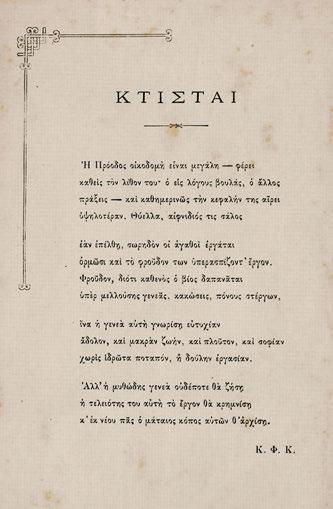 ΚΤΙΣΤΑΙ
Ἡ Πρόοδος οἰκοδομὴ εἶναι μεγάλη — φέρει
καθεὶς τὸν λίθον του· ὁ εἷς λόγους βουλάς, ὁ ἄλλος
πράξεις — καὶ καθημερινῶς τὴν κεφαλήν της αἴρει
ὑψηλοτέραν. Θύελλα, αἰφνίδιός τις σάλος
ἐὰν ἐπέλθῃ, σωρηδὸν οἱ ἀγαθοὶ ἐργάται
ὁρμῶσι καὶ τὸ φροῦδόν των ὑπερασπίζοντ' ἔργον.
Φροῦδον, διότι καθενὸς ὁ βίος δαπανᾶται
ὑπὲρ μελλούσης γενεᾶς, κακώσεις, πόνους στέργων,
ἵνα ἡ γενεὰ αὐτὴ γνωρίσῃ εὐτυχίαν
ἄδολον, καὶ μακρὰν ζωήν, καὶ πλοῦτον, καὶ σοφίαν
χωρὶς ἱδρῶτα ποταπόν, ἢ δούλην ἐργασίαν.
Ἀλλ' ἡ μυθώδης γενεὰ οὐδέποτε θὰ ζήσῃ·
ἡ τελειότης του αὐτὴ τὸ ἔργον θὰ κρημνίσῃ
κ' ἐκ νέου πᾶς ὁ μάταιος κόπος αὐτῶν θ' ἀρχίσῃ.
Κ. Φ. Κ.